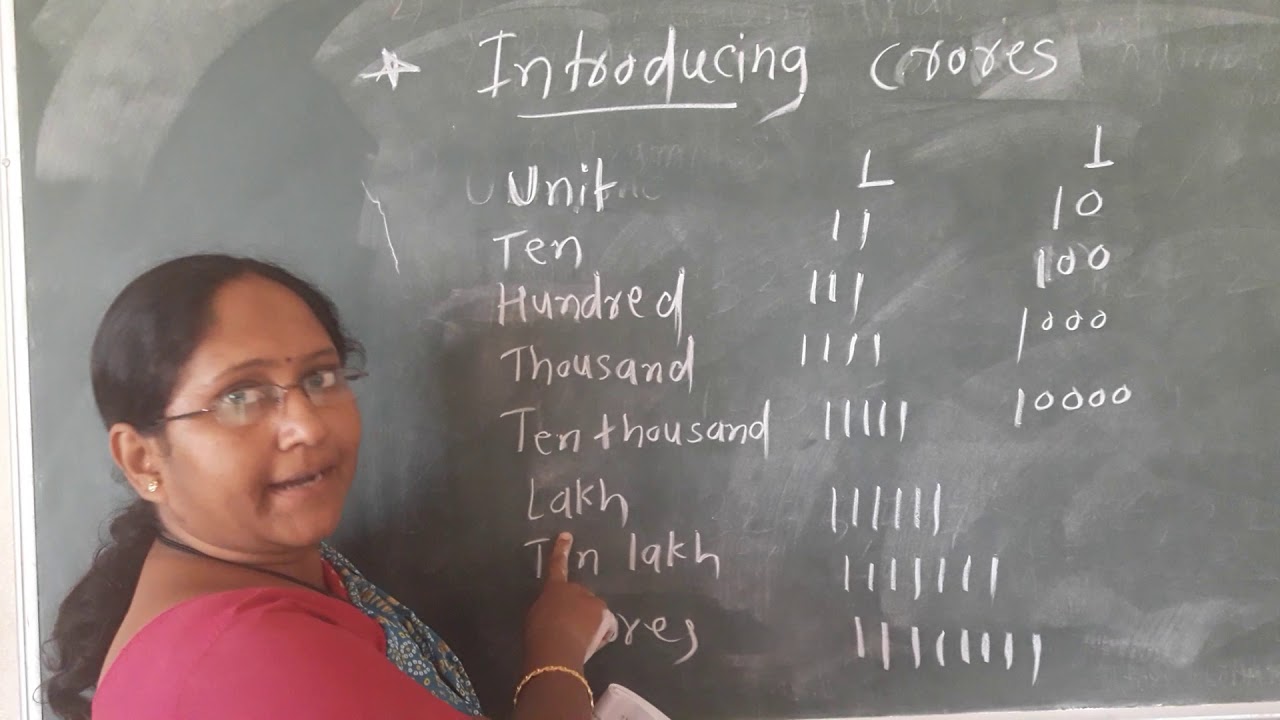 * Introducing crores
Unit 1 1
Ten 11 10
Hundred 111 100
Thousand 1111 1000
Ten thousand 11111 10000
Lakh 111111
Ten lakh 1111111
11111111